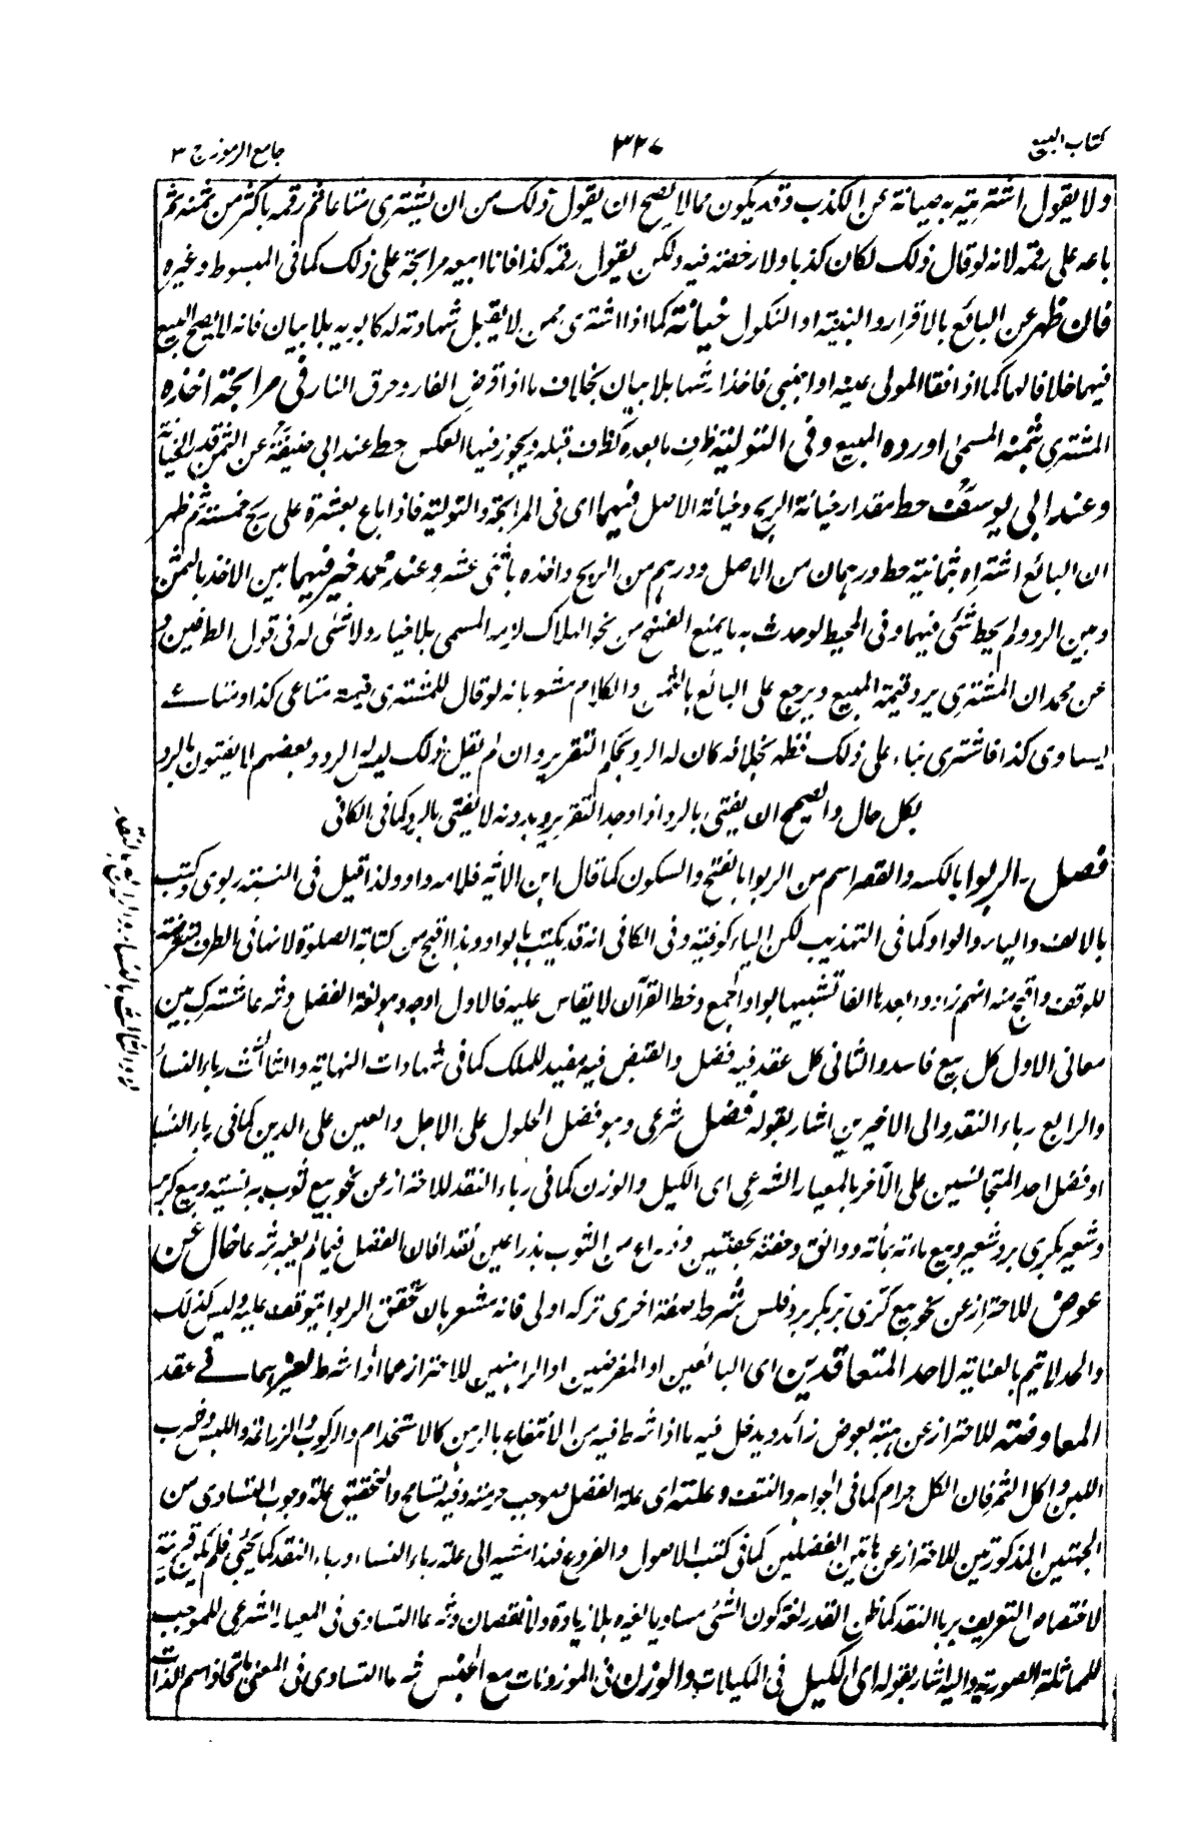 كتاب البيع
٣٢٧
جامع الرموز ج ٣
ولا يقول اشتريته به صيانة عن الكذب وقد يكون مما لا يصح ان يقول ذلك من ان يشترى متاعا ثم رقمه باكثر من ثمنه ثم
باعه على رقمه لانه لو قال ذلك لكان كذبا ولا رخصة فيه ولكن يقول رقمه كذا فانا ابيعه مرابحة على ذلك كما فى المبسوط وغيره
فان ظهر عن البائع بالاقرار والبينة او النكول خيانة كما اذا اشترى ممن لا يقبل شهادته له كابويه بلا بيان فانه لا يصح البيع
فيهما خلافا لهما كما اذا فقأ المولى عينه او اجنبى فاخذ ارشها بلا بيان بخلاف ما اذا قرض الفار وحرق النار فى مرابحة اخذه
المشترى بثمنه المسمى او رده المبيع وفى التولية ظرف ما بعده كظرف قبله ويجوز فيها العكس حط عند ابى حنيفة عن الثمن قدر الخيانة
وعند ابى يوسف حط مقدار خيانة الربح وخيانة الاصل فيهما اى فى المرابحة والتولية فاذا باع بعشرة على ربح خمسة ثم ظهر
ان البائع اشتراه بثمانية حط درهمان من الاصل ودرهم من الربح واخذه باثنى عشر وعند محمد خير فيهما بين الاخذ بالثمن
وبين الرد ولم يحط شئ فيهما وفى المحيط لو حدث به ما يمنع الفسخ من نحو الهلاك لزمه المسمى بلا خيار ولا شئ له فى قول الطرفين و
عن محمد ان المشترى يرد قيمة المبيع ويرجع على البائع بالثمن والكلام مشير بانه لو قال للمشترى قيمة متاعى كذا او متاعى
يساوى كذا فاشترى بناء على ذلك فظهر بخلافه كان له الرد بحكم التغرير وان لم يقل ذلك ليس له الرد وبعضهم لا يفتون بالرد
بكل حال والصحيح ان يفتى بالرد اذا وجد التغرير وبدونه لا يفتى بالرد كما فى الكافى
فصل ـ الربوا بالكسر والقصر اسم من الربو بالفتح والسكون كما قال ابن الاثير فلامه واو ولذا قيل فى النسبة ربوى وكتب
بالالف والياء والواو كما فى التهذيب لكن الياء كوفية وفى الكافى انه قد يكتب بالواو وهذا اقبح من كتابة الصلوة لانها فى الطرف متعرضة
للوقف واقبح منه انهم زادوا بعدها الفا تشبيها بواو الجمع وخط القرآن لا يقاس عليه فالاول اوجه وهو لغة الفضل وشرعا مشترك بين
معانى الاول كل بيع فاسد والثانى كل عقد فيه فضل والقبض فيه مفيد للملك كما فى شهادات النهاية والثالث رباء النسأ
والرابع رباء النقد والى الاخيرين اشار بقوله فضل شرعى وهو فضل الحلول على الاجل والعين على الدين كما فى رباء النسأ
او فضل احد المتجانسين على الآخر بالمعيار الشرعى اى الكيل والوزن كما فى رباء النقد للاحتراز عن نحو بيع ثوب به نسية وبيع كر بر
وشعير بكرى بر وشعير وبيع مائة بمأته ودانق وحفنة بحفنتين وذراع من الثوب بذراعين نقدا فان الفضل فيها لم يعتبر شرعا خال عن
عوض للاحتراز عن نحو بيع كرى بر بكر بر وفلس شرط صفة اخرى تركه اولى فانه مشعر بان تحقق الربوا يتوقف عليه وليس كذلك
والحد لا يتم بالعناية لاحد المتعاقدين اى البائعين او المقرضين او الراهنين للاحتراز عما اذا شرط لغيرهما فى عقد
المعاوضة للاحتراز عن هبة بعوض زائد ويدخل فيه ما اذا شرط فيه من الانتفاع بالرهن كالاستخدام والركوب والزراعة واللبس وشرب
اللبن واكل الثمر فان الكل حرام كما فى الجواهر والنتف وعلته اى علة الفضل لموجب حرمته وفيه تسامح والتحقيق علة وجوب التساوى من
الجهتين المذكورتين للاحتراز عن هاتين الفضلين كما فى كتب الاصول والفروع فهذا مشير الى علة رباء النساء ورباء النقد كما يجئ فلم يكن قرينة
لاختصاص التعريف بربا النقد كما ظن القدر لغة كون الشئ مساويا لغيره بلا زيادة ولا نقصان وشرعا التساوى فى المعيار الشرعى للموجب
للمماثلة الصورية واليه اشار بقوله اى الكيل فى المكيلات والوزن فى الموزونات مع الجنس شرعا التساوى فى المعنى باتحاد اسم الذات